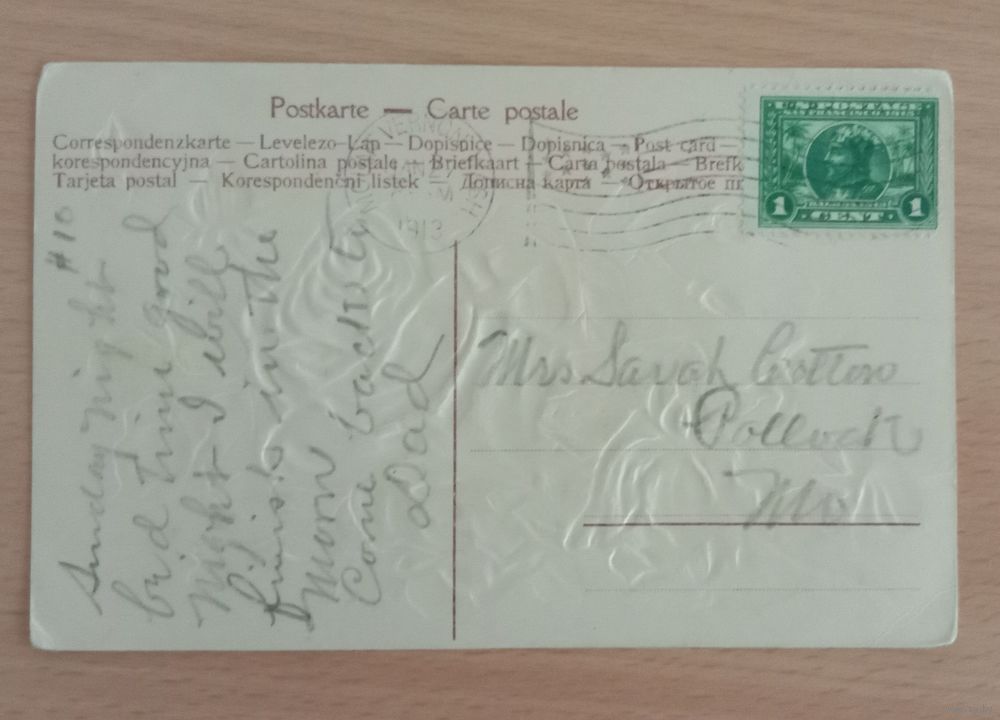 Postkarte — Carte postale
Correspondenzkarte — Levelezo-Lap — Dopisnice — Dopisnica — Post card —
korespondencyjna — Cartolina postale — Briefkaart — Carta postala — Brefk
Tarjeta postal — Korespondenční listek — Дописна карта — Открытое пи
U.S. POSTAGE
SAN FRANCISCO 1915
1 CENT 1
1913
#10
Sunday night
bed time good
night I will
finish in the
morn
Come back
Dad
Mrs Sarah
Pollock
Mo